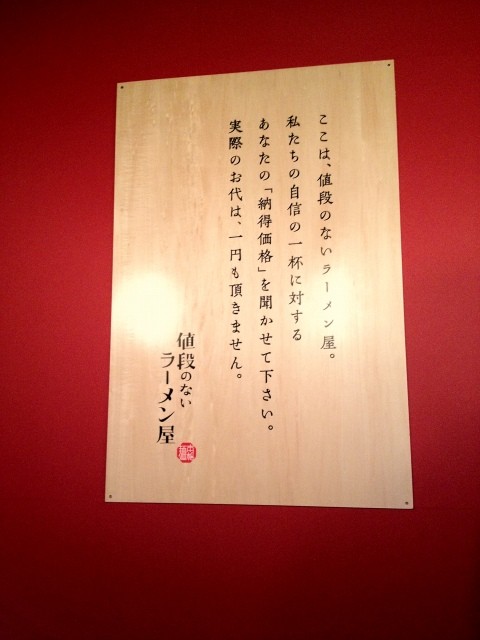 ここは、値段のないラーメン屋。
私たちの自信の一杯に対する
あなたの「納得価格」を聞かせて下さい。
実際のお代は、一円も頂きません。
値段のない
ラーメン屋